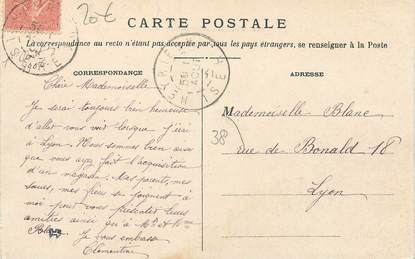 20€
CARTE POSTALE
La correspondance au recto n'étant pas acceptée par tous les pays étrangers, se renseigner à la Poste
CORRESPONDANCE
ADRESSE
ISÈRE
Chère Mademoiselle
Je serai toujours bien heureuse
d'aller vous voir lorsque j'irai
à Lyon. Nous sommes bien aises
que vous ayez fait l'acquisition
d'un magasin. Mes parents, mes
sœurs, mes frères se joignent à
moi pour vous présenter leurs
amitiés ainsi qu'à Mr et Mme
Blanc. Je vous embrasse
Clémentine
Mademoiselle Blanc
38
rue de Bonald 18
Lyon